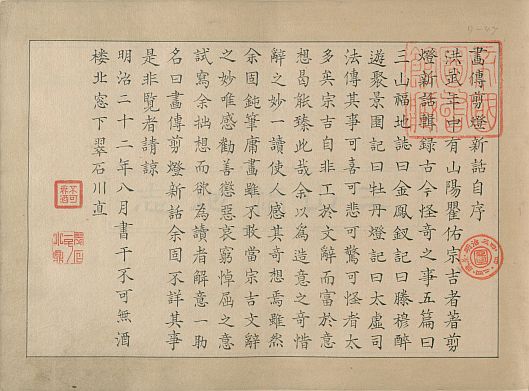 畫傳剪燈新話自序
洪武年中有山陽瞿佑宗吉者著剪
燈新話輯錄古今怪奇之事五篇曰
三山福地誌曰金鳳釵記曰滕穆醉
遊聚景園記曰牡丹燈記曰太虛司
法傳其事可喜可悲可驚可怪者太
多矣宗吉自非工於文辭而富於意
想曷能臻此哉余以為造意之奇惜
辭之妙一讀使人感其奇想焉雖然
余固鈍筆庸畫雖不敢當宗吉文辭
之妙唯感勸善懲惡哀窮悼屈之意
試寫余拙想而欲為讀者解意一助
名曰畫傳剪燈新話余固不詳其事
是非覽者請諒
明治二十二年八月書于不可無酒
楼北窓下翠石川直